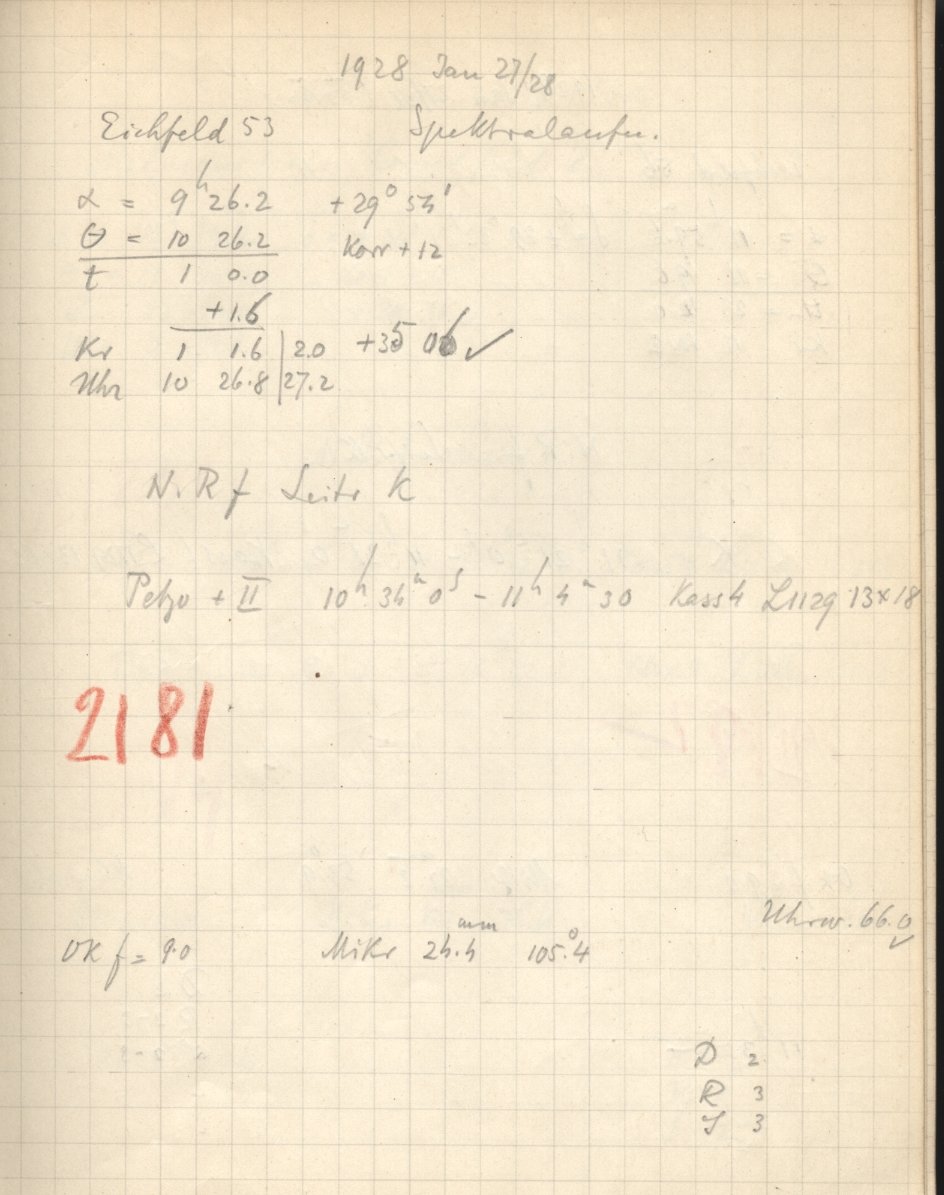 1928 Jan 27/28
Eichfeld 53 Spektralaufn.
α = 9h 26.2 +29° 54'
θ = 10 26.2 Korr +12
t 1 0.0
+1.6
Kr 1 1.6 | 2.0 +35 06 ✓
Uhr 10 26.8 | 27.2
N. R f Seite K
Petzv + II 10h 34m 0s - 11h 4m 30 Kass 4 13x18
2181
Uhrw. 66.0 ✓
OK f = 9.0 Mikr 24.4 mm 105.°4
D 2
R 3
J 3